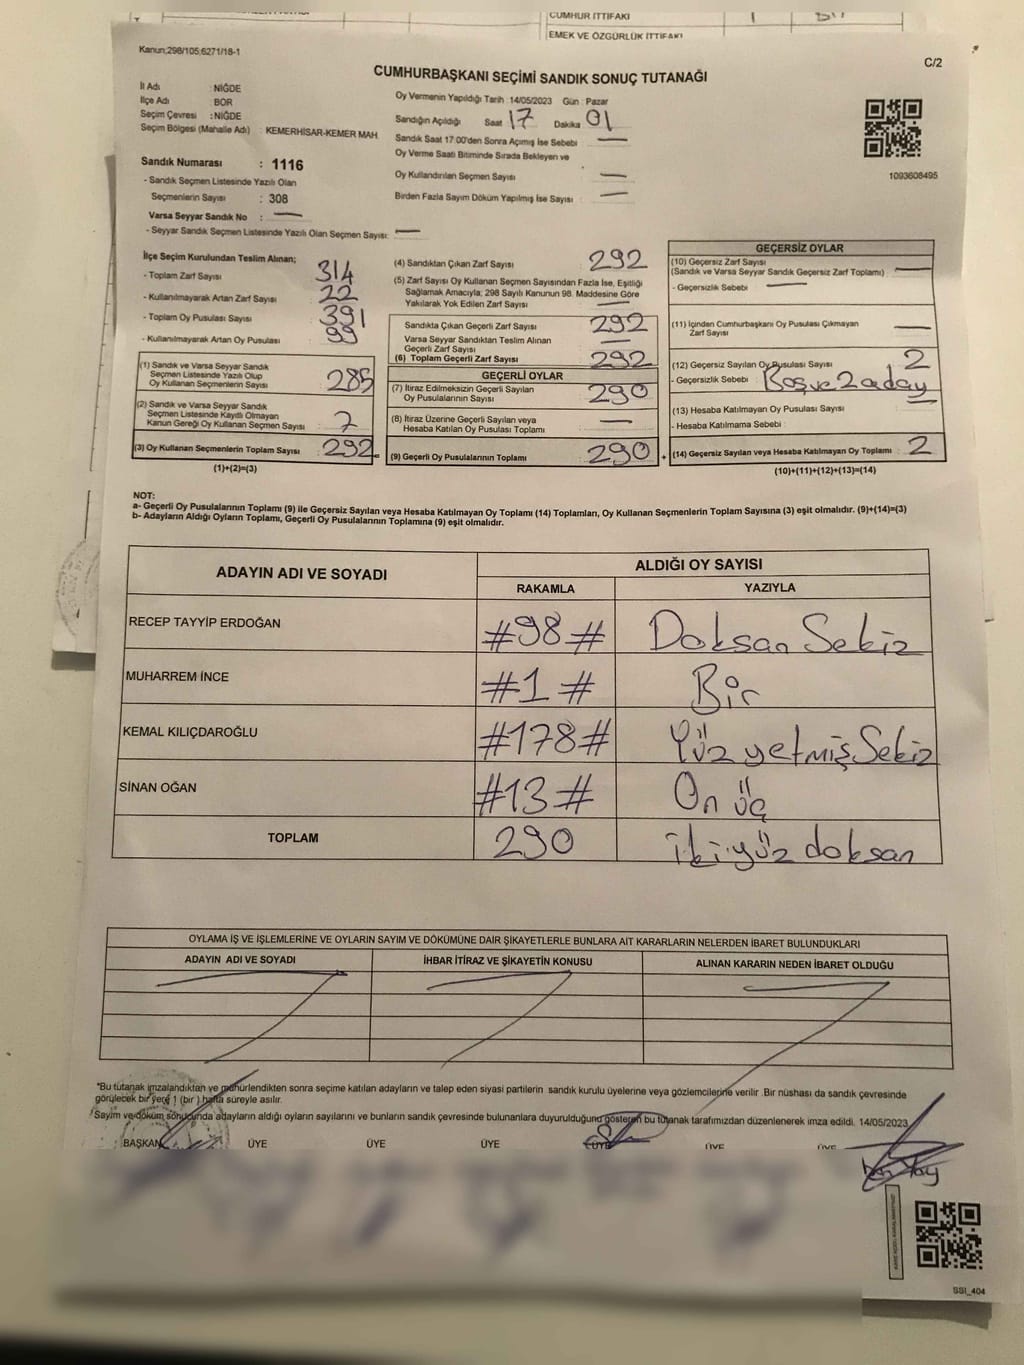 CUMHUR İTTİFAKI
EMEK VE ÖZGÜRLÜK İTTİFAKI
Kanun:298/105;6271/18-1
C/2
CUMHURBAŞKANI SEÇİMİ SANDIK SONUÇ TUTANAĞI
İl Adı : NİĞDE
İlçe Adı : BOR
Seçim Çevresi : NİĞDE
Seçim Bölgesi (Mahalle Adı) : KEMERHİSAR-KEMER MAH.
Sandık Numarası : 1116
- Sandık Seçmen Listesinde Yazılı Olan
Seçmenlerin Sayısı : 308
Varsa Seyyar Sandık No : —
- Seyyar Sandık Seçmen Listesinde Yazılı Olan Seçmen Sayısı: —
Oy Vermenin Yapıldığı Tarih : 14/05/2023 Gün : Pazar
Sandığın Açıldığı Saat 17 Dakika 01
Sandık Saat 17:00'den Sonra Açımış İse Sebebi —
Oy Verme Saati Bitiminde Sırada Bekleyen ve
Oy Kullandırılan Seçmen Sayısı —
Birden Fazla Sayım Döküm Yapılmış İse Sayısı : —
1093608495
İlçe Seçim Kurulundan Teslim Alınan;
- Toplam Zarf Sayısı : 314
- Kullanılmayarak Artan Zarf Sayısı : 22
- Toplam Oy Pusulası Sayısı : 391
- Kullanılmayarak Artan Oy Pusulası : 99
(1) Sandık ve Varsa Seyyar Sandık
Seçmen Listesinde Yazılı Olup
Oy Kullanan Seçmenlerin Sayısı : 285
(2) Sandık ve Varsa Seyyar Sandık
Seçmen Listesinde Kayıtlı Olmayan
Kanun Gereği Oy Kullanan Seçmen Sayısı : 7
(3) Oy Kullanan Seçmenlerin Toplam Sayısı : 292 =
(1)+(2)=(3)
(4) Sandıktan Çıkan Zarf Sayısı : 292
(5) Zarf Sayısı Oy Kullanan Seçmen Sayısından Fazla İse, Eşitliği
Sağlamak Amacıyla; 298 Sayılı Kanunun 98. Maddesine Göre
Yakılarak Yok Edilen Zarf Sayısı : —
Sandıkta Çıkan Geçerli Zarf Sayısı : 292
Varsa Seyyar Sandıktan Teslim Alınan
Geçerli Zarf Sayısı : —
(6) Toplam Geçerli Zarf Sayısı : 292
GEÇERLİ OYLAR
(7) İtiraz Edilmeksizin Geçerli Sayılan
Oy Pusulalarının Sayısı : 290
(8) İtiraz Üzerine Geçerli Sayılan veya
Hesaba Katılan Oy Pusulası Toplamı : —
(9) Geçerli Oy Pusulalarının Toplamı : 290 +
GEÇERSİZ OYLAR
(10) Geçersiz Zarf Sayısı
(Sandık ve Varsa Seyyar Sandık Geçersiz Zarf Toplamı) : —
- Geçersizlik Sebebi : —
(11) İçinden Cumhurbaşkanı Oy Pusulası Çıkmayan
Zarf Sayısı : —
(12) Geçersiz Sayılan Oy Pusulası Sayısı : 2
- Geçersizlik Sebebi : Boş ve 2 aday
(13) Hesaba Katılmayan Oy Pusulası Sayısı : —
- Hesaba Katılmama Sebebi :
(14) Geçersiz Sayılan veya Hesaba Katılmayan Oy Toplamı : 2
(10)+(11)+(12)+(13)=(14)
NOT:
a- Geçerli Oy Pusulalarının Toplamı (9) ile Geçersiz Sayılan veya Hesaba Katılmayan Oy Toplamı (14) Toplamları, Oy Kullanan Seçmenlerin Toplam Sayısına (3) eşit olmalıdır. (9)+(14)=(3)
b- Adayların Aldığı Oyların Toplamı, Geçerli Oy Pusulalarının Toplamına (9) eşit olmalıdır.
ADAYIN ADI VE SOYADI ALDIĞI OY SAYISI
RAKAMLA YAZIYLA
RECEP TAYYİP ERDOĞAN #98# Doksan Sekiz
MUHARREM İNCE #1# Bir
KEMAL KILIÇDAROĞLU #178# Yüz yetmiş Sekiz
SİNAN OĞAN #13# On üç
TOPLAM 290 iki yüz doksan
OYLAMA İŞ VE İŞLEMLERİNE VE OYLARIN SAYIM VE DÖKÜMÜNE DAİR ŞİKAYETLERLE BUNLARA AİT KARARLARIN NELERDEN İBARET BULUNDUKLARI
ADAYIN ADI VE SOYADI İHBAR İTİRAZ VE ŞİKAYETİN KONUSU ALINAN KARARIN NEDEN İBARET OLDUĞU
*Bu tutanak imzalandıktan ve mühürlendikten sonra seçime katılan adayların ve talep eden siyasi partilerin sandık kurulu üyelerine veya gözlemcilerine verilir .Bir nüshası da sandık çevresinde
görülecek bir yere 1 (bir ) hafta süreyle asılır.
Sayım ve döküm sonucunda adayların aldığı oyların sayılarını ve bunların sandık çevresinde bulunanlara duyurulduğunu gösteren bu tutanak tarafımızdan düzenlenerek imza edildi. 14/05/2023
BAŞKAN ÜYE ÜYE ÜYE ÜYE ÜYE ÜYE
SSI_404